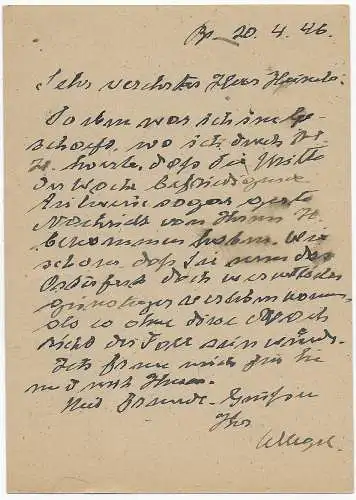 20. 4. 46.
Sehr verehrter Herr
Soeben war ich im Ge-
schäft, wo ich durch
hörte, daß Sie Mitte
der Woche befriedigende
sogar gute
Nachricht von Ihrem
bekommen haben. Wie
schön, daß Sie nun das
Osterfest doch
verleben können,
als es ohne diese
nicht der Fall sein würde.
Ich freue mich für Sie
und mit Ihnen.
Mit Freundl. Grüßen
Ihr